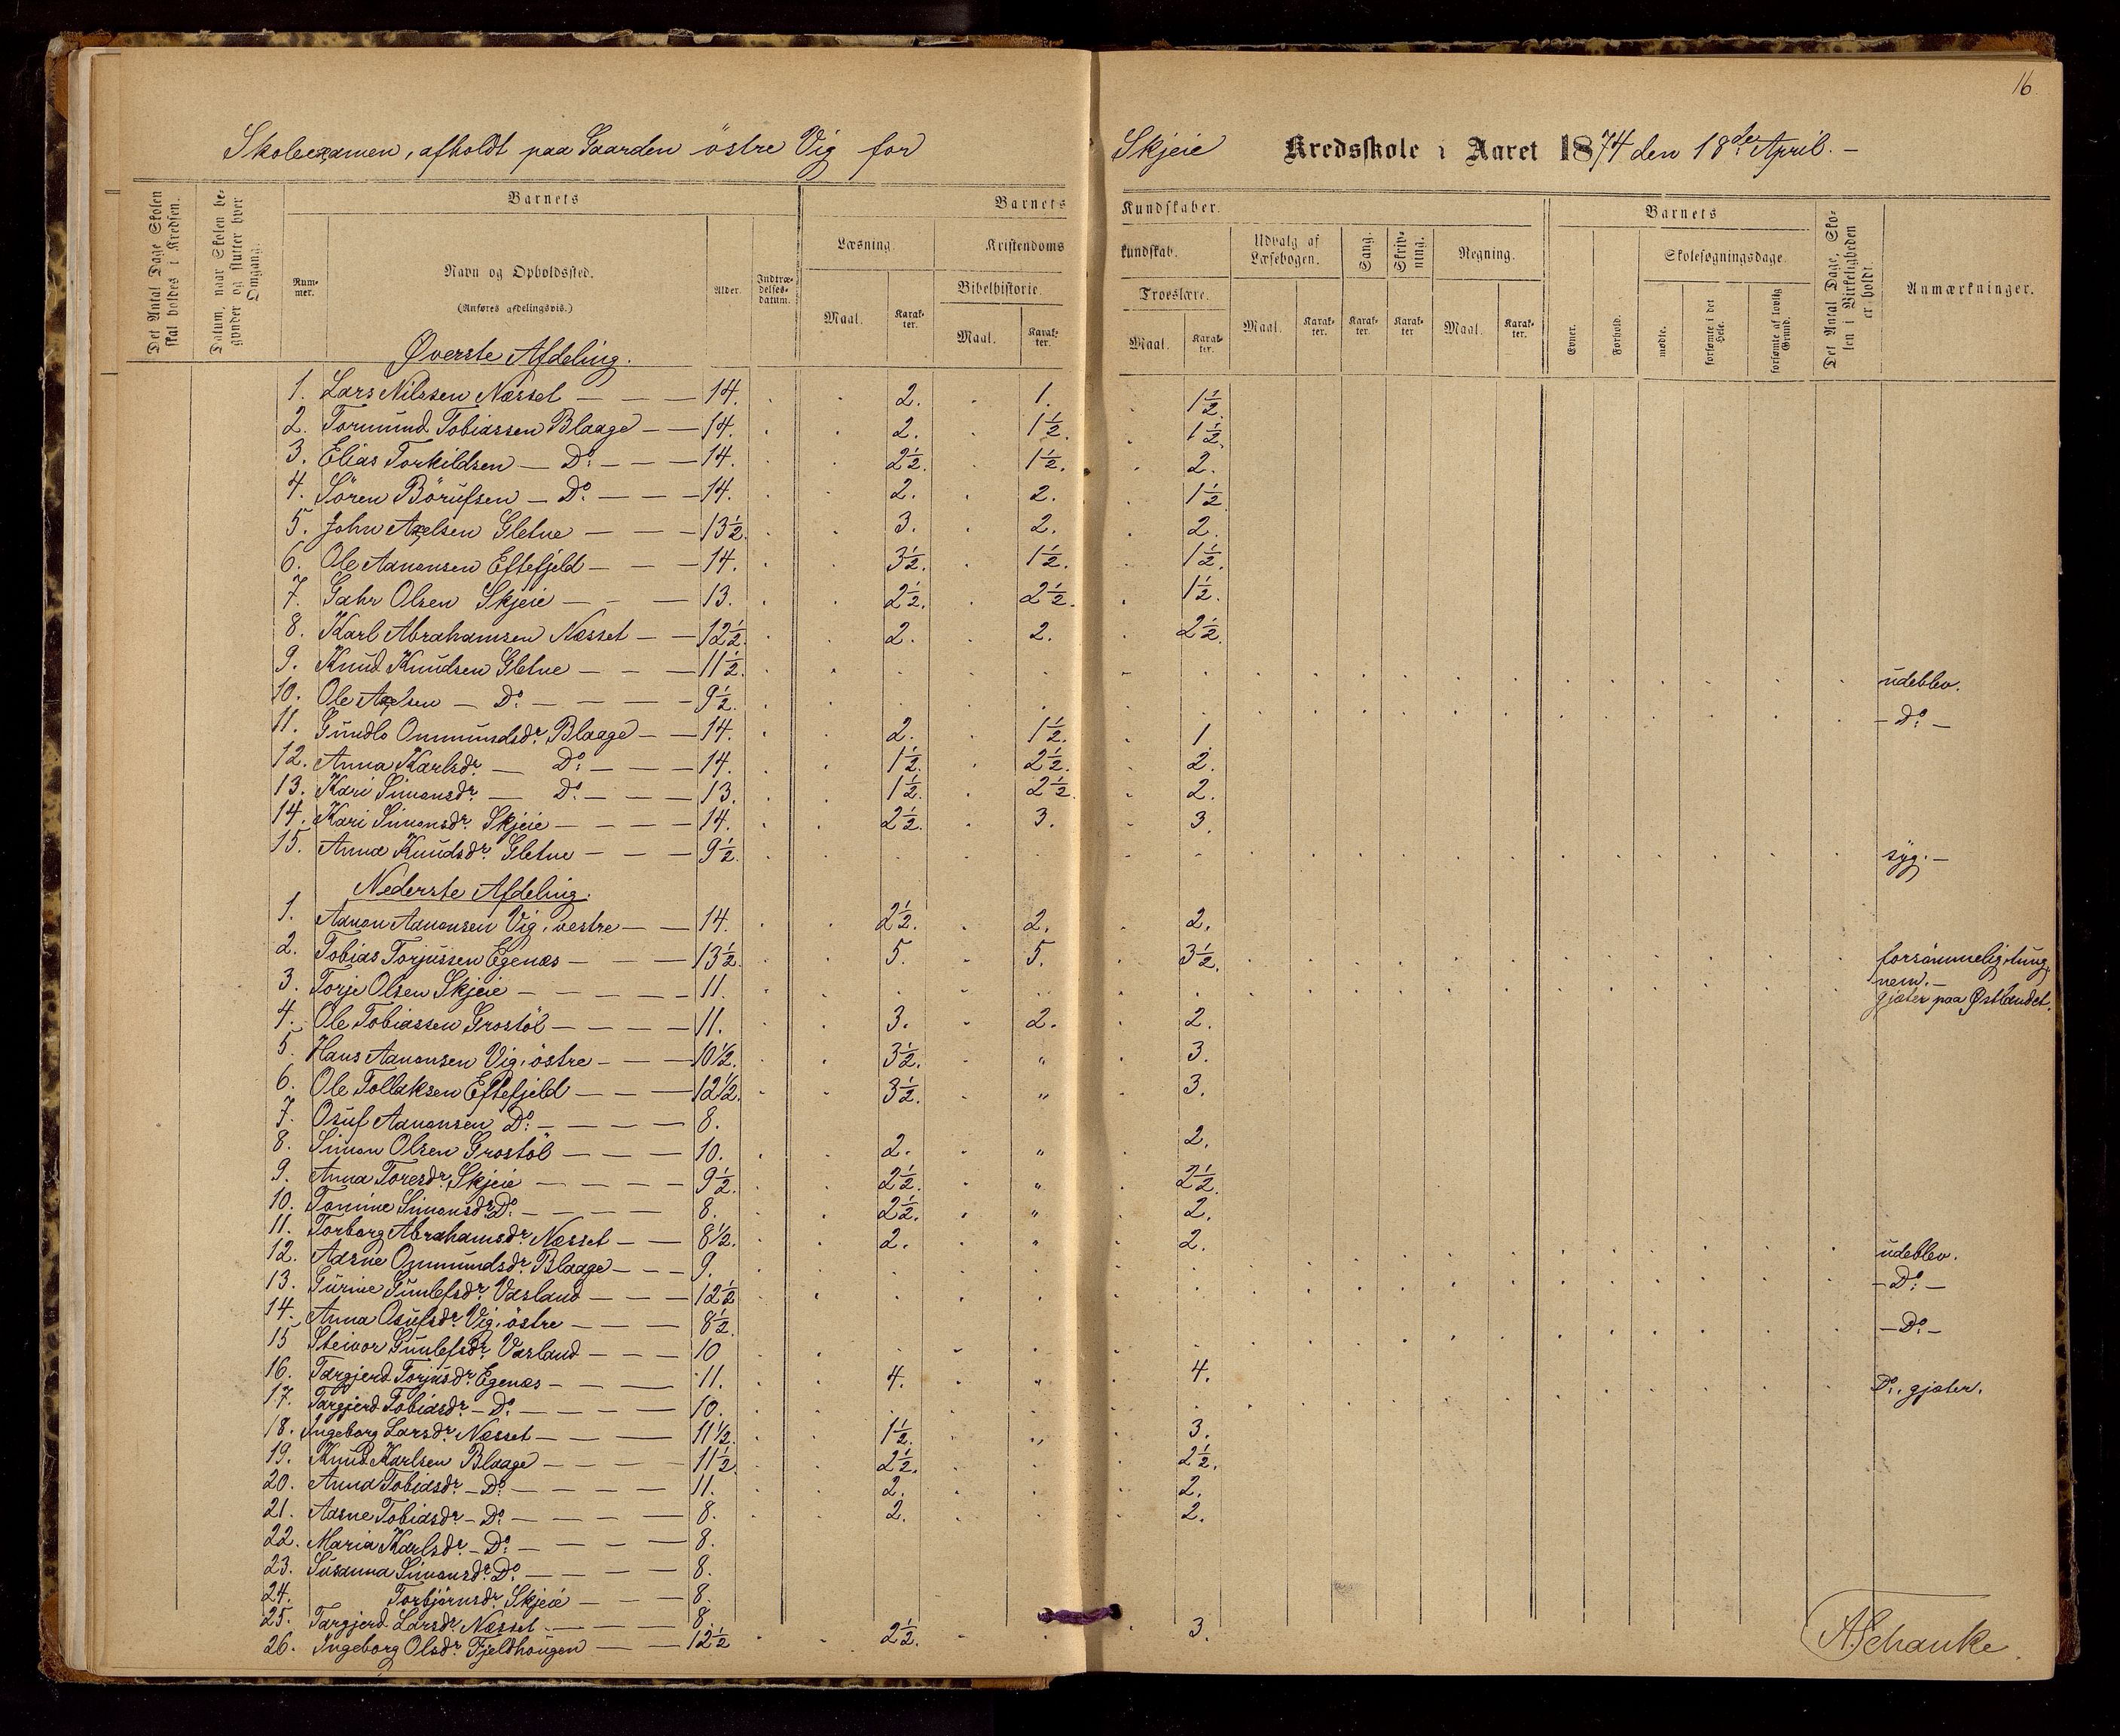 16.
Skoleexamen, afholdt paa Gaarden östre Vig for Skjeie Kredsskole i Aaret 1874 den 18de April. —
Det Antal Dage Skolen skal holdes i Kredsen.
Datum, naar Skolen begynder og slutter hver Omgang.
Barnets
Nummer.
Navn og Opholdssted.
(Anføres afdelingsvis.)
Alder.
Indtrædelsesdatum.
Barnets Kundskaber.
Læsning.
Maal.
Karakter.
Kristendomskundskab.
Bibelhistorie.
Maal.
Karakter.
Troeslære.
Maal.
Karakter.
Udvalg af Læsebogen.
Maal.
Karakter.
Sang.
Karakter.
Skrivning.
Karakter
Regning.
Maal.
Karakter.
Barnets
Evner.
Forhold.
Skolesøgningsdage.
mødte.
forsømte i det Hele.
forsømte af lovlig Grund.
Det Antal Dage, Skolen i Virkeligheden er holdt.
Anmærkninger.
Øverste Afdeling.
1. Lars Nilssen Næsset — — — 14. 2. 1. 1½.
2. Tormund Tobiassen Blaage — — 14. 2. 1½. 1½.
3. Elias Torkildsen — Do. — — — 14. 2½. 1½. 2.
4. Sören Börufsen — Do. — — — 14. 2. 2. 1½
5. John Axelsen Gletne — — — 13½. 3. 2. 2.
6. Ole Aanonsen Eftefjeld — — — 14. 3½. 1½. 1½.
7. Gahr Olsen Skjeie — — — 13. 2½. 2½. 1½.
8. Karl Abrahamsen Næsset — — 12½. 2. 2. 2½.
9. Knud Knudsen Gletne — — — 11½. udeblev.
10. Ole Axelsen — Do. — — — — 9½. — Do —
11. Gundlo Ommundsdr. Blaage — — 14. 2. 1½. 1.
12. Anna Karlsdr. — Do. — — — 14. 1½. 2½. 2.
13. Kari Simonsdr. — Do. — — — 13. 1½. 2½. 2.
14. Kari Simonsdr. Skjeie — — — — 14. 2½. 3. 3.
15. Anna Knudsdr. Gletne — — — 9½. syg. —
Nederste Afdeling.
1. Aanon Aanonsen Vig, vestre — — 14. 2½. 2. 2.
2. Tobias Torjussen Egenæs — — — 13½. 5. 5. 3½. forsömmelig, tungnem. —
3. Torje Olsen Skjeie — — — — — 11. gjæter paa Østlandet.
4. Ole Tobiassen Grostöl — — — — 11. 3. 2. 2.
5. Hans Aanonsen Vig, östre — — — 10½. 3½. " 3.
6. Ole Tollaksen Eftefjeld — — — 12½. 3½. " 3.
7. Osuf Aanonsen Do. — — — — — 8.
8. Simon Olsen Grostöl — — — — 10. 2. " 2.
9. Anna Toresdr. Skjeie — — — — 9½. 2½. " 2½.
10. Tomine Simonsdr. Do. — — — — 8. 2½. " 2.
11. Torborg Abrahamsdr. Næsset — — 8½. 2. " 2.
12. Aasne Ommundsdr. Blaage — — — 9. udeblev.
13. Gurine Gunlefsdr. Vasland — — — 12½ — Do. —
14. Anna Osufsdr. Vig, östre — — — — 8½.
15 Steivor Gunlefsdr. Vasland — — — 10 — Do. —
16. Targjerd Torjusdr. Egenæs — — — 11. 4. " 4.
17. Targjerd Tobiasdr. — Do. — — — — 10. Do., gjæter.
18. Ingeborg Larsdr. Næsset — — — — 11½. 1½. " 3.
19. Knud Karlsen Blaage — — — — 11½. 2½. 2½.
20. Anna Tobiasdr. — Do. — — — — 11. 2. 2.
21. Aasne Tobiasdr. — Do. — — — — 8. 2. 2.
22. Maria Karlsdr. — Do. — — — — 8.
23. Susanna Simonsdr. Do. — — — — 8.
24. Torbjörnsdr. Skjeie — — — 8.
25. Targjerd Larsdr. Næsset. — — — — 8.
26. Ingeborg Olsdr. Fjeldhougen — — 12½ 2½. 3.
A. Schanke.